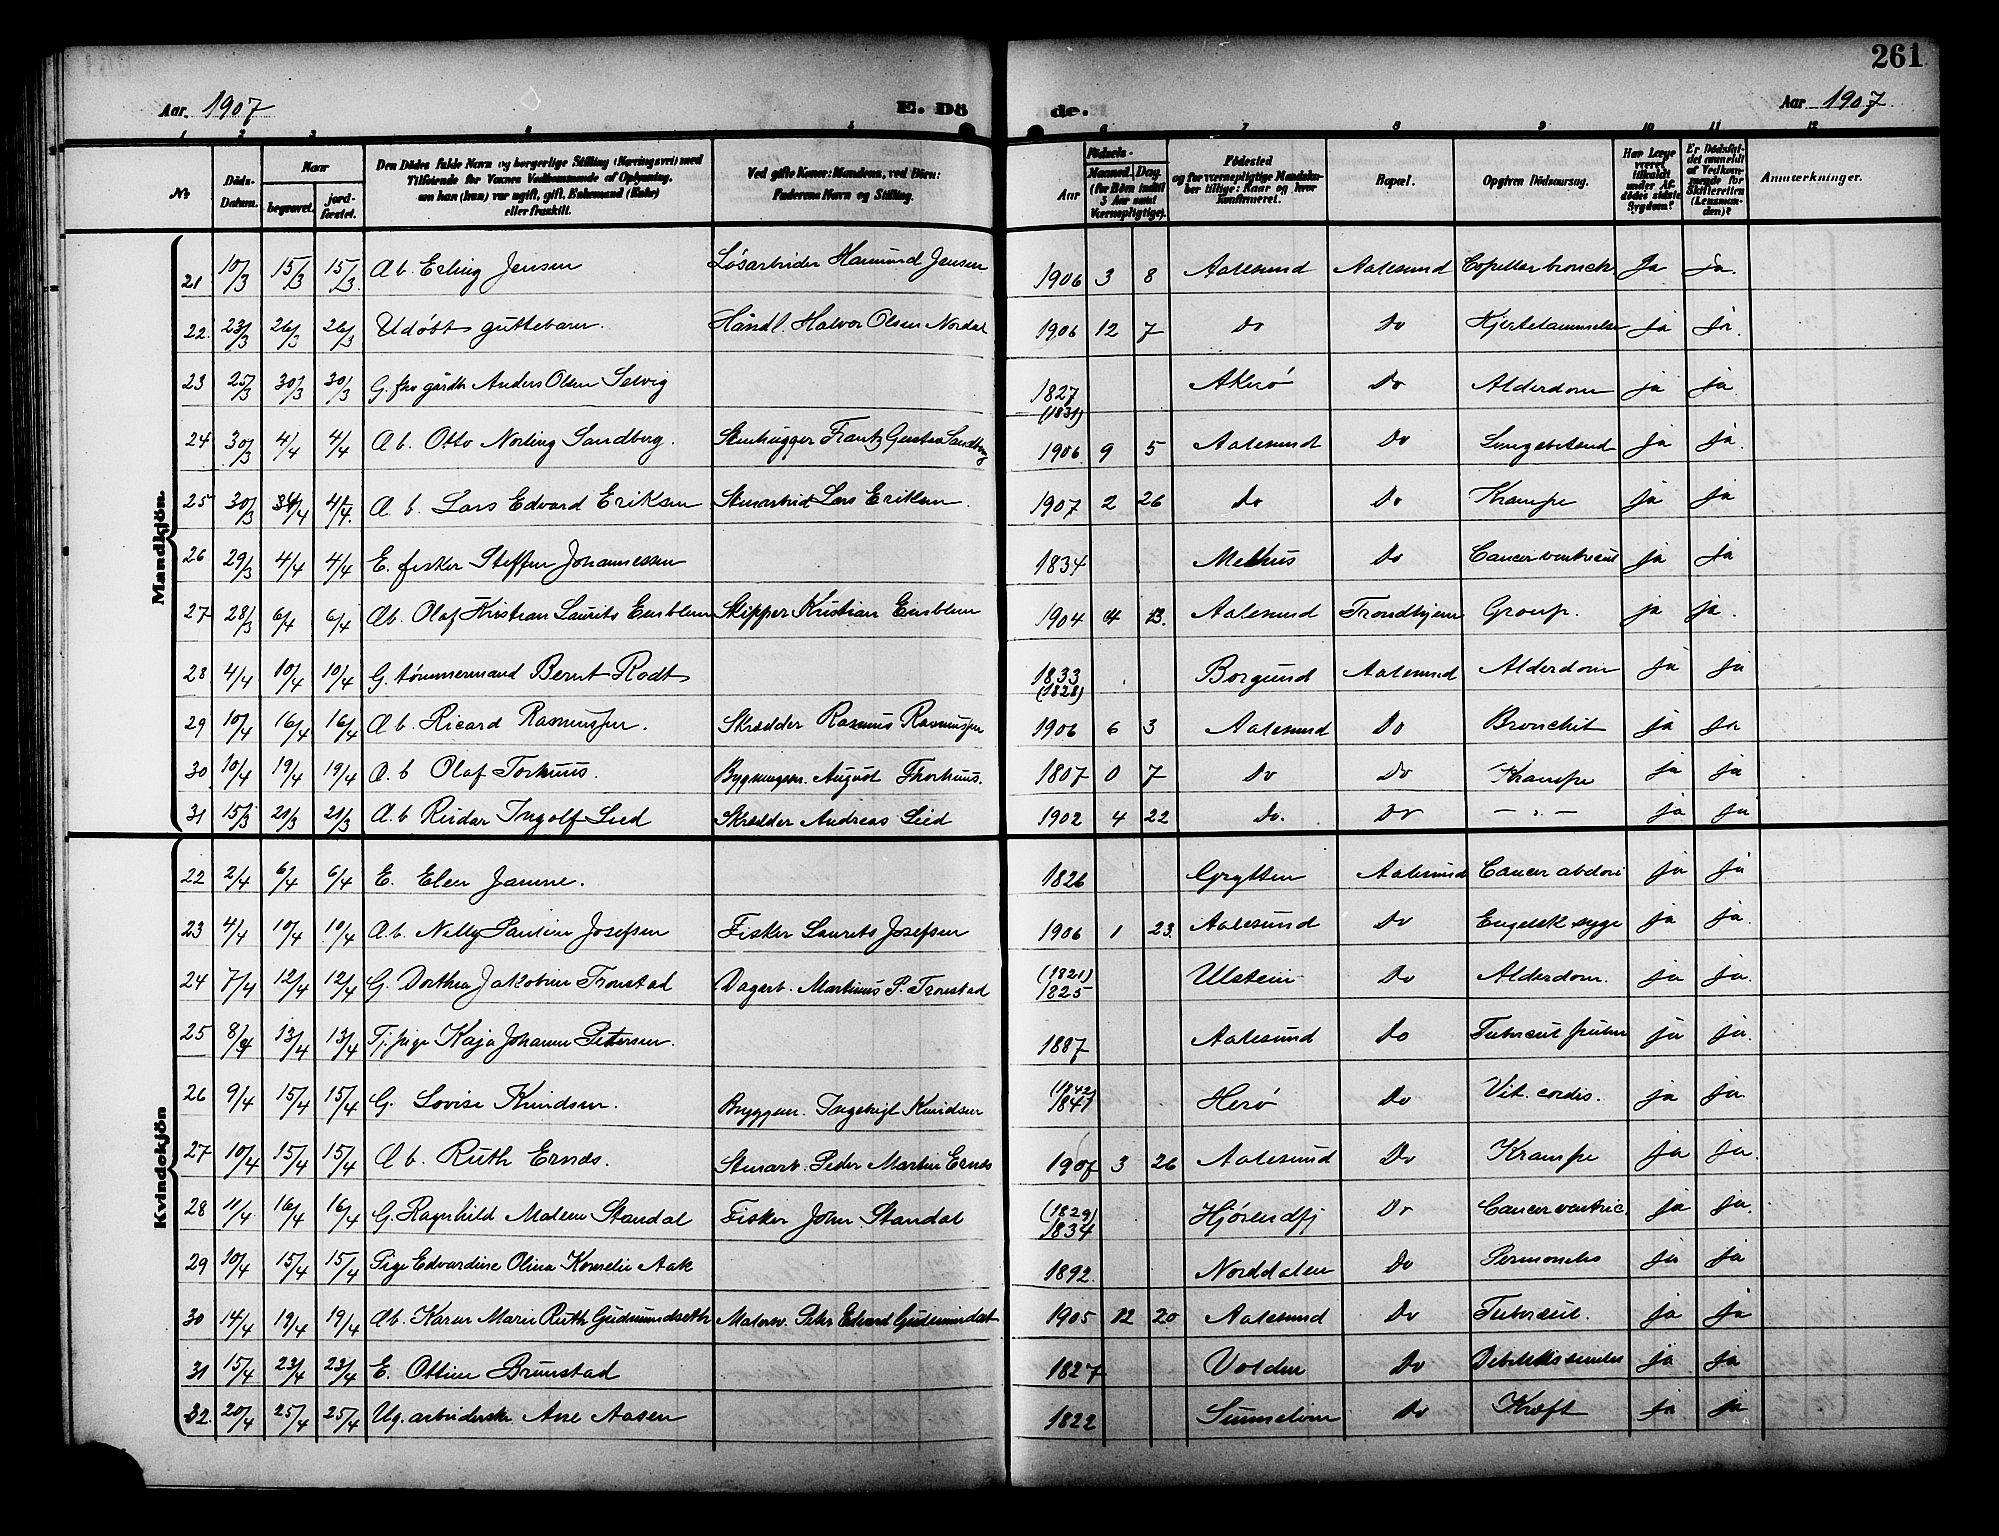 261
Aar 1907 E. Dö de. Aar 1907
1 2 3 4 5 6 7 8 9 10 11 12
№ Döds-Datum. Naar begravet. jordfæstet. Den Dödes fulde Navn og borgerlige Stilling (Næringsvei) med Tilföiende for Voxnes Vedkommende af Oplysning, om han (hun) var ugift, gift, Enkemand (Enke) eller fraskilt. Ved gifte Koner: Mandens, ved Börn: Faderens Navn og Stilling. Födsels- Aar Maaned. Dag. (for Börn indtil 5 Aar samt Værnepligtige). Födested og for værnepligtige Mandskaber tillige: Naar og hvor konfirmeret. Bopæl. Opgiven Dödsaarsag. Har Læge været tilkaldt under Afdödes sidste Sygdom? Er Dödsfaldet anmeldt af Vedkommende for Skifteretten (Lensmanden)? Anmærkninger.
Mandkjön.
21 10/3 15/3 15/3 Ab. Erling Jensen Løsarbeider Hamund Jensen 1906 3 8 Aalesund Aalesund Capellær bronch. Ja ja.
22. 23/3 26/3 26/3 Udøbt guttebarn. Håndl. Halvor Olsen Nordal 1906 12 7 Do Do Hjertelammelse ja ja.
23 25/3 30/3 30/3 G. fhv gårdb. Anders Olsen Selvig 1827 (1831) Akerö Do Alderdom ja ja
24 30/3 4/4 4/4 A b. Otto Norling Sandberg. Stenhugger Frantz Gustav Sandberg 1906 9 5 Aalesund Do Lungebetænd ja ja.
25 30/3 4/4 4/4. A. b. Lars Edvard Eriksen Stenarbeid Lars Eriksen. 1907 2 26 Do Do Krampe ja ja
26 29/3 4/4 4/4 E. fisker Steffen Johannessen 1834 Melhus Do Cancer ventricul ja ja
27 28/3 6/4 6/4 Ab. Olaf Kristian Laurits Emblem Skipper Kristian Emblem 1904 4 13. Aalesund Trondhjem Croup. ja ja.
28 4/4 10/4 10/4 G. tømmermand Bernt Rodt 1833 (1828) Borgund Aalesund Alderdom ja ja
29 10/4 16/4 16/4 A b. Ricard Rasmussen. Skrædder Rasmus Rasmussen 1906 6 3 Aalesund Do Bronchit ja ja
30 10/4 19/4 19/4 A. b Olaf Torhuus. Bygningsm. August Thorhuus. 1807 0 7 Do Do Krampe ja ja
31 15/3 20/3 20/3 A. b Reidar Ingolf Lied Skrædder Andreas Lied 1902 4 22 Do. Do — „ — ja ja
Kvindekjön
22 2/4 6/4 6/4 E. Elen Jamne. 1826 Grytten Aalesund Cancer abdom ja ja
23 4/4 10/4 10/4 A.b. Nelly Pauline Josefsen Fisker Laurits Josefsen 1906 1 23. Aalesund Do Engelsk syge ja ja.
24 7/4 12/4 12/4 G. Dorthea Jakobine Tronstad Dagarb. Martinus P. Tronstad (1821) 1825 Ulstein Do Alderdom. ja ja
25 8/4 13/4 13/4 Tj. pige Kaja Johanne Pettersen. 1887 Aalesund Do Tubercul pulm ja ja.
26 9/4 15/4 15/4 G. Lovise Knudsen. Bryggem. Ingebrigt Knudsen (1842) 1841 Herö Do Vit. cordis. ja ja.
27 10/4 15/4 15/4 A b. Ruth Ernæs. Stenarb. Peder Martin Ernæs 1907 3 26 Aalesund Do Krampe ja ja.
28 11/4. 16/4 16/4 G. Ragnhild Malene Standal Fisker John Standal (1829) 1834 Hjørendfj Do Cancer ventric. ja ja.
29 10/4 15/4 15/4 Pige Edvardine Olina Kornelie Aak 1892. Norddalen Do ja ja
30 14/4 19/4 19/4 Ab. Karen Marie Ruth Gudmundseth Peter Edvard Gudmundset 1905 12 20 Aalesund Do Tubercul. ja ja
31 15/4 23/4 23/4 E. Ottine Brunstad 1827 Volden Do Debilitas senilis ja ja
32. 20/4 25/4 25/4 Ug. arbeiderske Ane Aasen 1822 Sunnelven Do Kræft ja ja